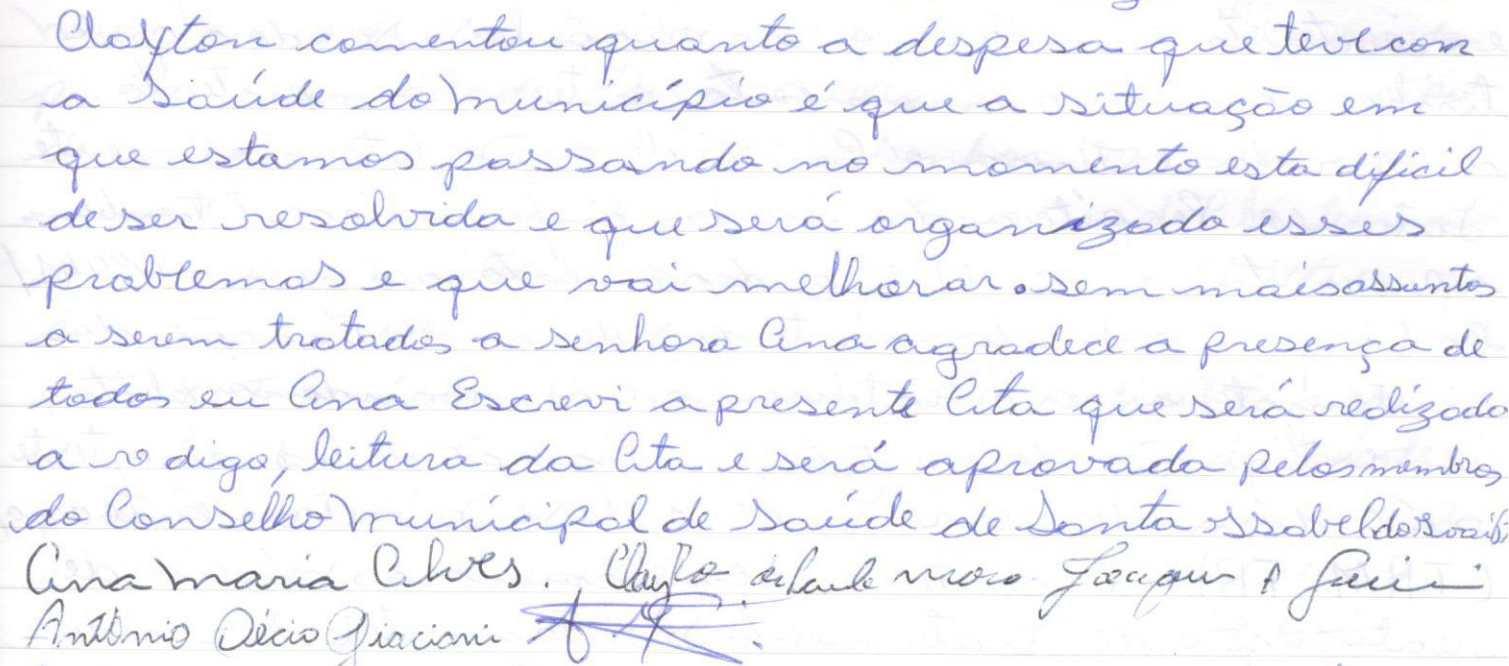 Clayton comentou quanto a despesa que teve com
a Saúde do Município é que a situação em
que estamos passando no momento esta dificil
de ser resolvida e que será organizado esses
problemas e que vai melhorar. sem mais assuntos
a serem tratados a senhora Ana agradece a presença de
todos eu Ana Escrevi a presente Ata que será redizado
a r digo, leitura da Ata e será aprovada pelos membros
do Conselho Municipal de Saúde de Santa Issabel do Ivaí
Ana Maria Alves. Clayto
Antônio Décio Giaciani